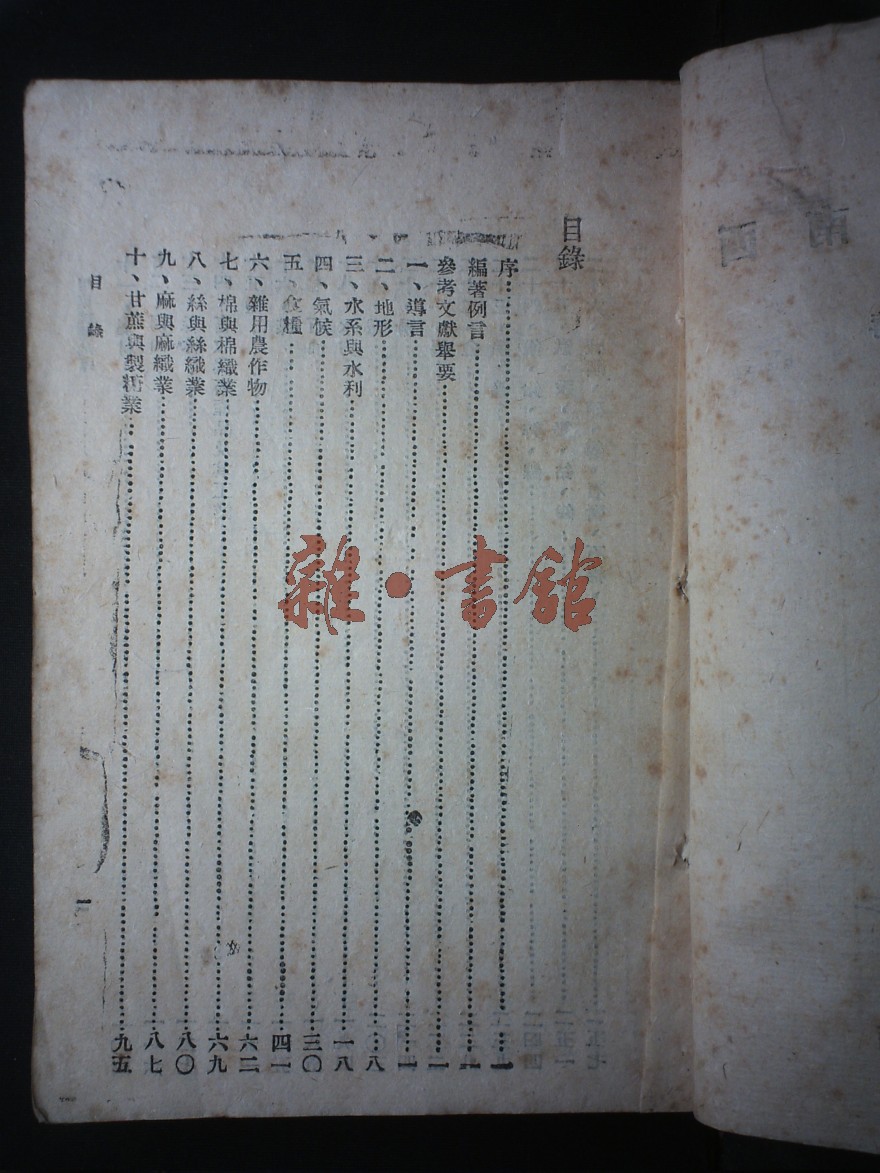 目錄
序一
編著例言一
參考文獻舉要一
一、導言一
二、地形八
三、水系與水利一八
四、氣候三〇
五、食糧四一
六、雜用農作物六二
七、棉與棉織業六九
八、絲與絲織業八〇
九、麻與麻織業八七
十、甘蔗與製糖業九五
目錄
一
雜·書館